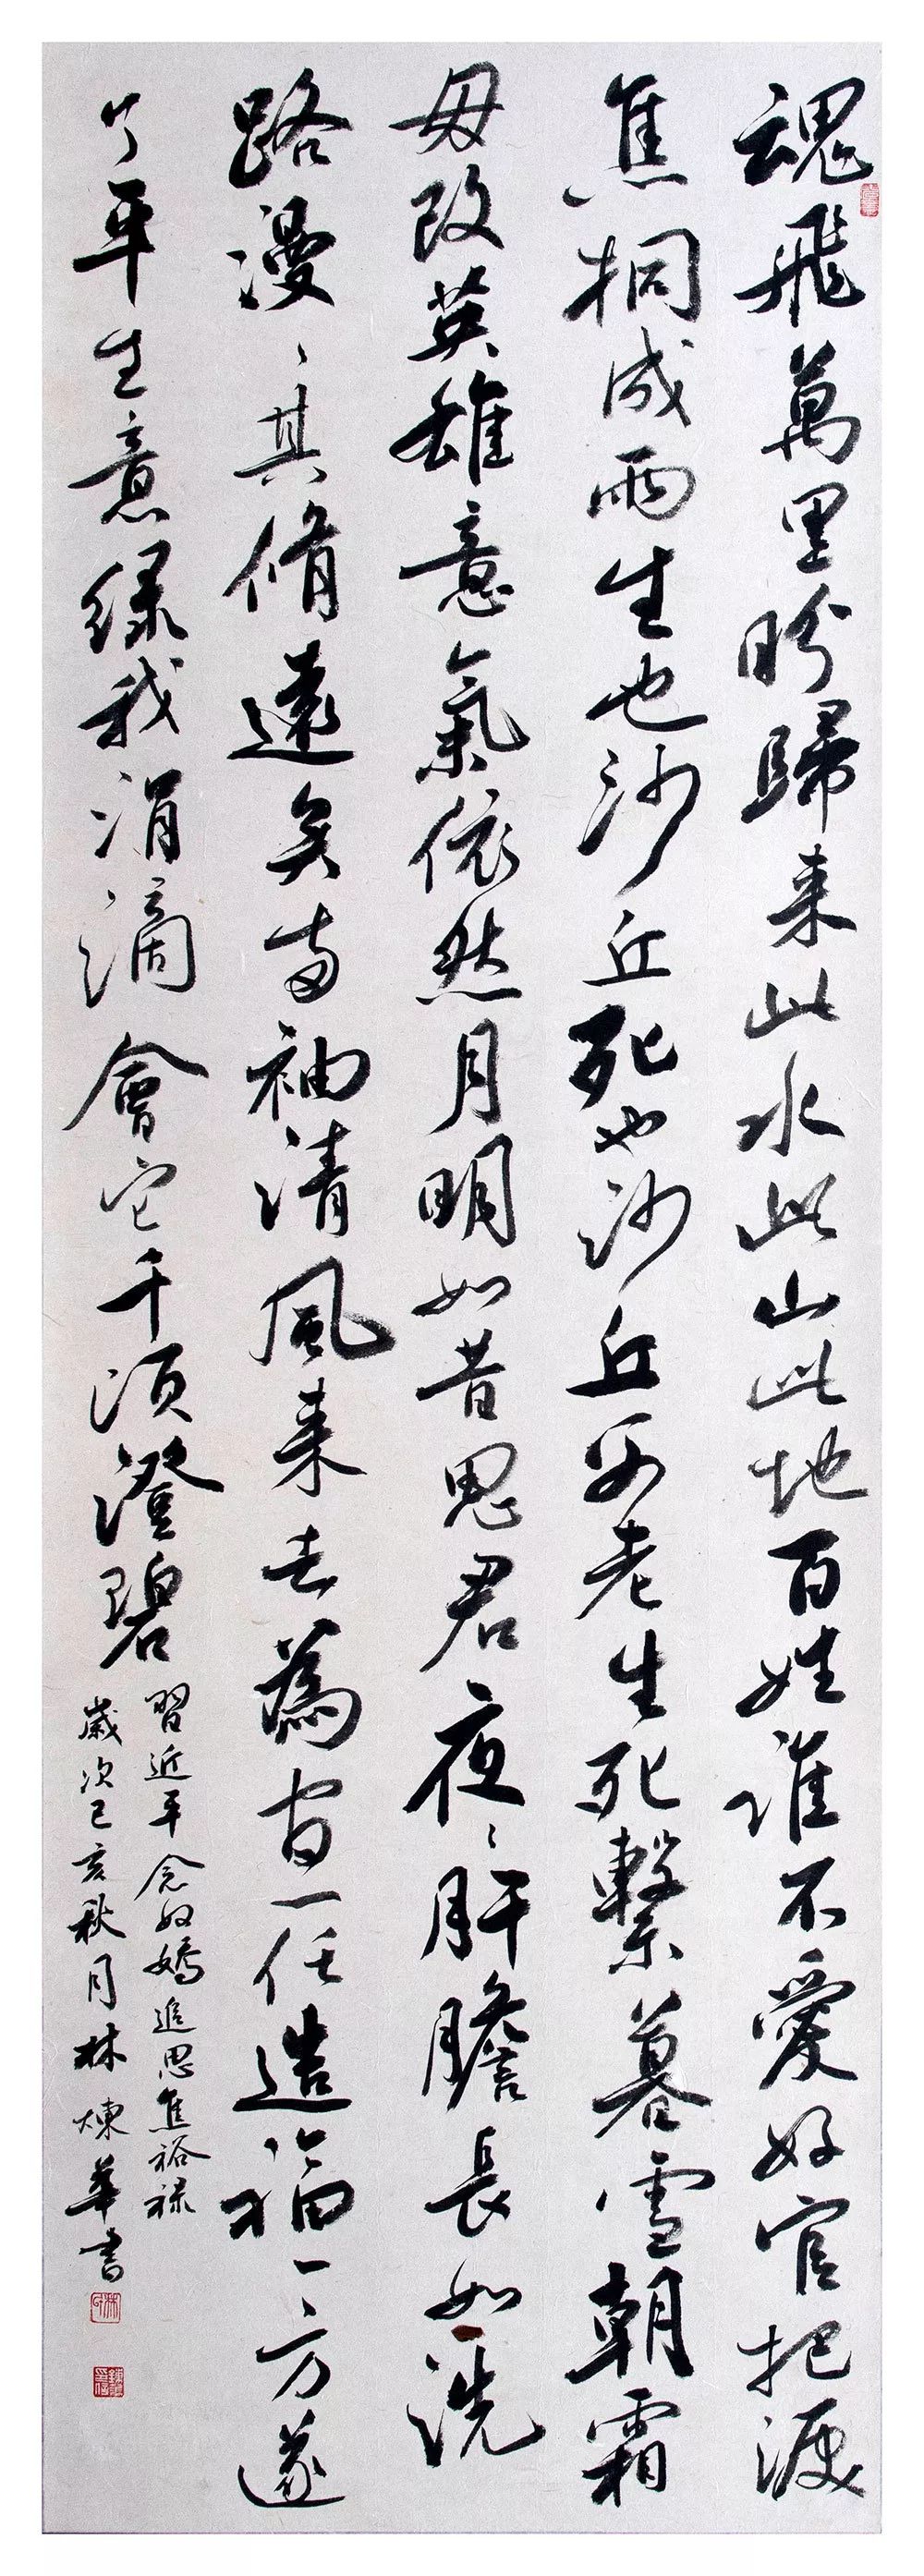 魂飛萬里盼歸来此水此山此地百姓誰不愛好官把淚
焦桐成雨生也沙丘死也沙丘父老生死繫暮雪朝霜
毋改英雄意氣依然月明如昔思君夜〻肝膽長如洗
路漫〻其脩遠矣两袖清風来去為官一任造福一方遂
了平生意绿我涓滴會它千頃澄碧
習近平念奴嬌追思焦裕禄
歲次己亥秋月林煉華書